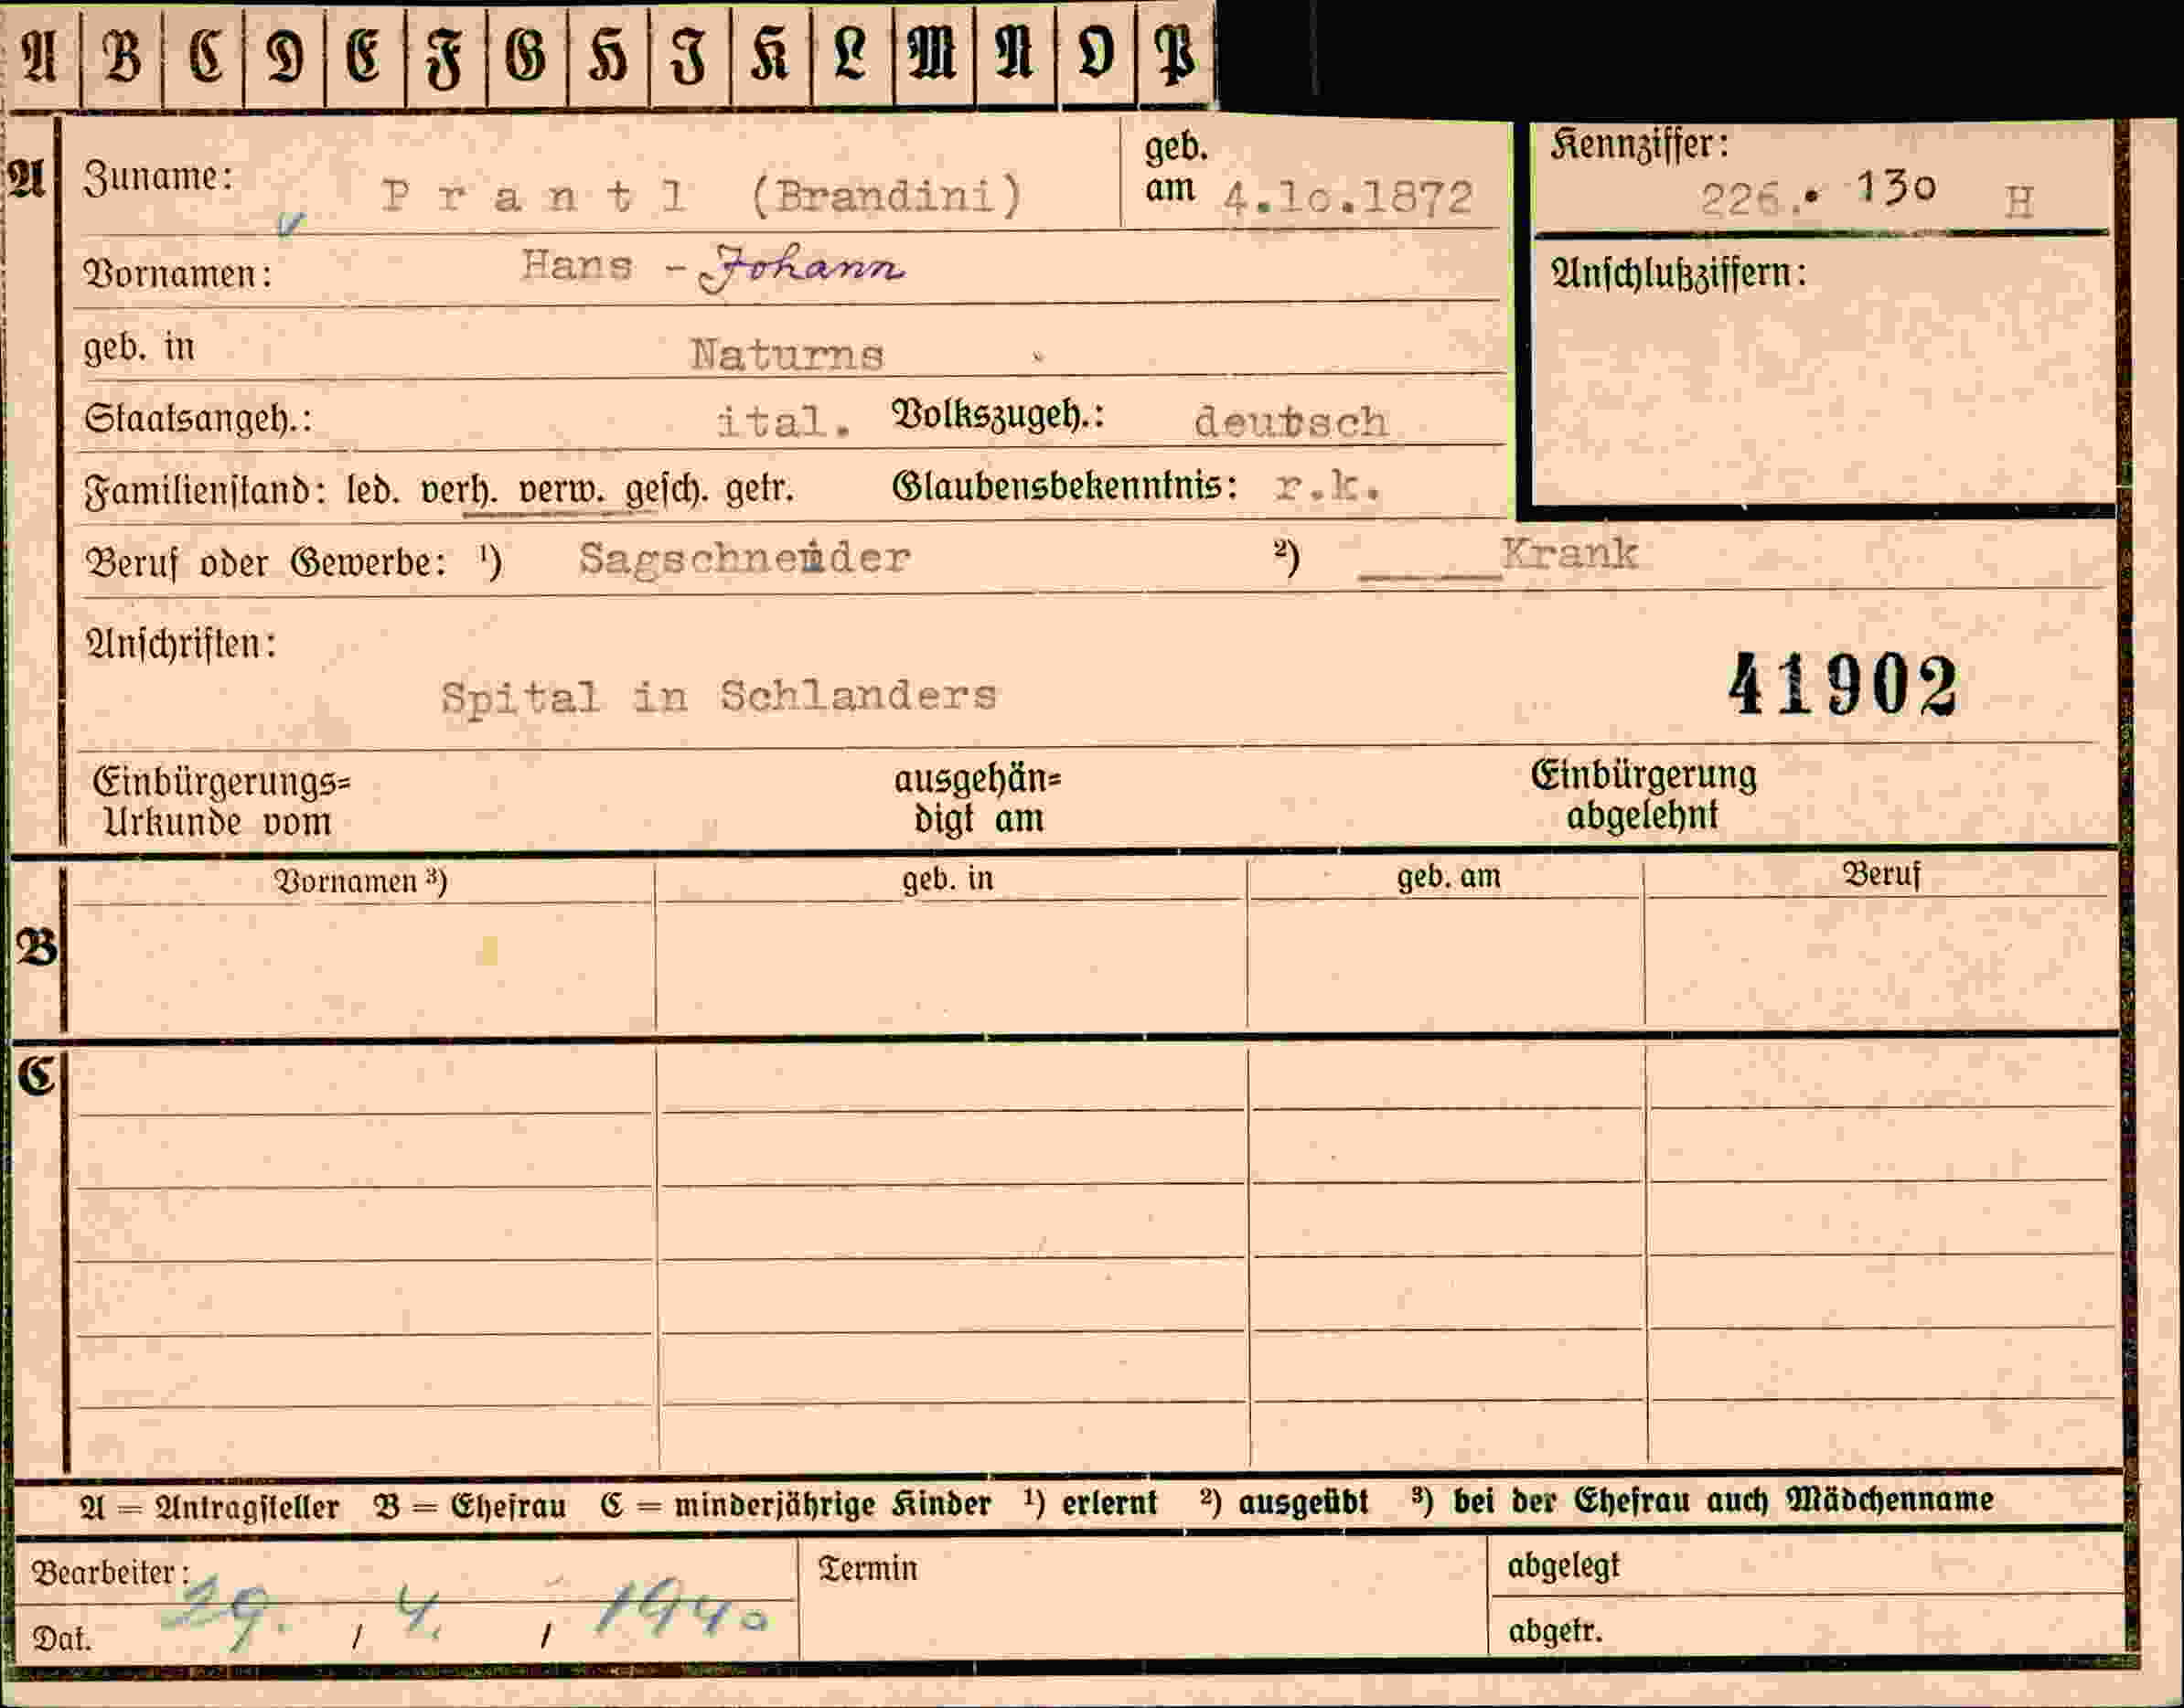 A B C D E F G H I K L M N O P
A Zuname: P r a n t l (Brandini) geb. am 4.10.1872
Kennziffer: 226.. 130 H
Vornamen: Hans - Johann
Anschlußziffern:
geb. in Naturns
Staatsangeh.: ital. Volkszugeh.: deutsch
Familienstand: led. verh. verw. gesch. getr. Glaubensbekenntnis: r.k.
Beruf oder Gewerbe: ¹) Sagschneider ²) ____Krank
Anschriften:
Spital in Schlanders 41902
Einbürgerungs= ausgehän= Einbürgerung
Urkunde vom digt am abgelehnt
Vornamen ³) geb. in geb. am Beruf
B
C
A = Antragsteller B = Ehefrau C = minderjährige Kinder ¹) erlernt ²) ausgeübt ³) bei der Ehefrau auch Mädchenname
Bearbeiter: Termin abgelegt
Dat. 29. / 4. / 1940 abgetr.